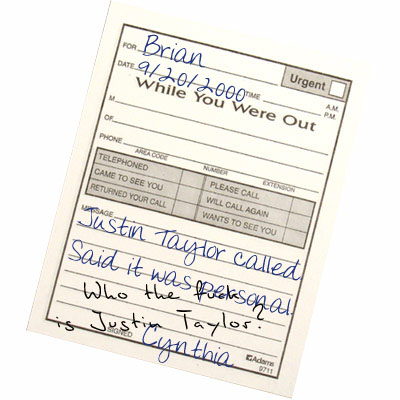 FOR Brian
Urgent
DATE 9/20/2000 TIME A.M.
P.M.
While You Were Out
M
OF
PHONE
AREA CODE NUMBER EXTENSION
TELEPHONED PLEASE CALL
CAME TO SEE YOU WILL CALL AGAIN
RETURNED YOUR CALL WANTS TO SEE YOU
MESSAGE
Justin Taylor called.
Said it was personal.
Who the fuck
is Justin Taylor?
SIGNED Cynthia
Adams
9711